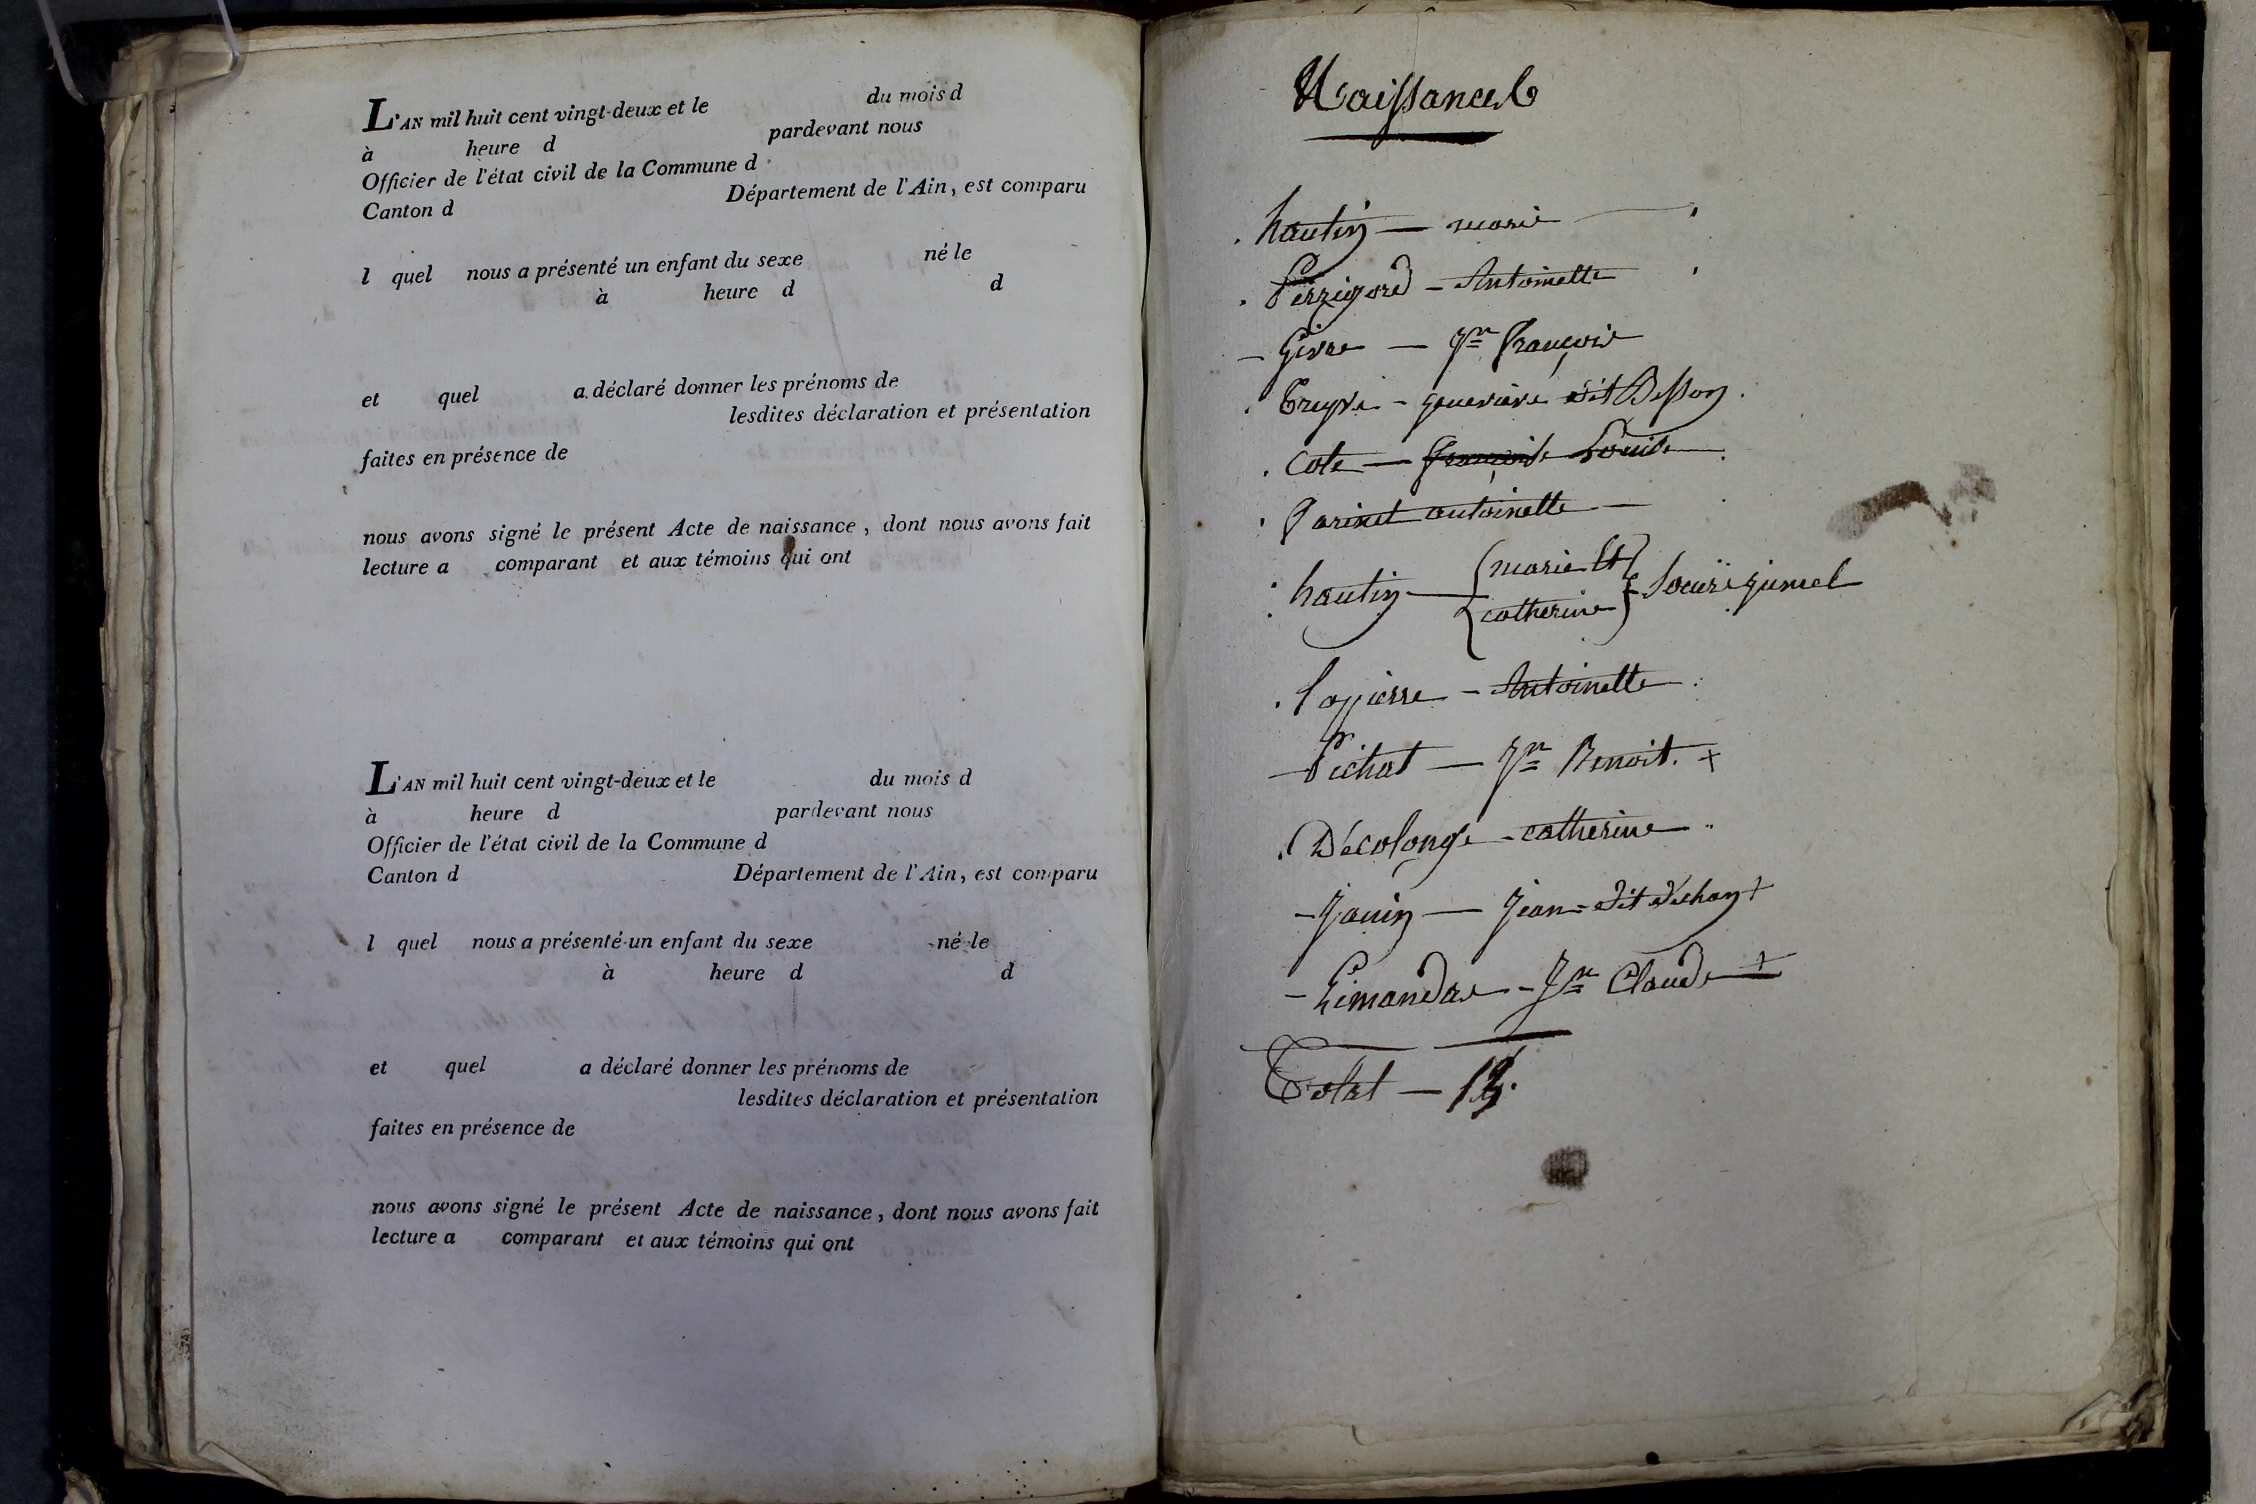 L'AN mil huit cent vingt-deux et le du mois d
à heure d pardevant nous
Officier de l'état civil de la Commune d
Canton d Département de l'Ain, est comparu
l quel nous a présenté un enfant du sexe né le
à heure d d
et quel a déclaré donner les prénoms de
lesdites déclaration et présentation
faites en présence de
nous avons signé le présent Acte de naissance, dont nous avons fait
lecture a comparant et aux témoins qui ont
L'AN mil huit cent vingt-deux et le du mois d
à heure d pardevant nous
Officier de l'état civil de la Commune d
Canton d Département de l'Ain, est comparu
l quel nous a présenté un enfant du sexe né le
à heure d d
et quel a déclaré donner les prénoms de
lesdites déclaration et présentation
faites en présence de
nous avons signé le présent Acte de naissance, dont nous avons fait
lecture a comparant et aux témoins qui ont
Naissances
hautin — marie
Perrigord - Antoinette
- Givre — Jn François
Treyve - genevieve dit Besson
Cote — françoise Louise
Parinet antoinette —
hautin — marie Et
catherine soeurs jumel
lapierre - Antoinette
Pichat — Jn Benoit. +
Décolonge - catherine
- Janin — Jean dit Dichon +
- Limandas - Jn Claude +
Total — 13.